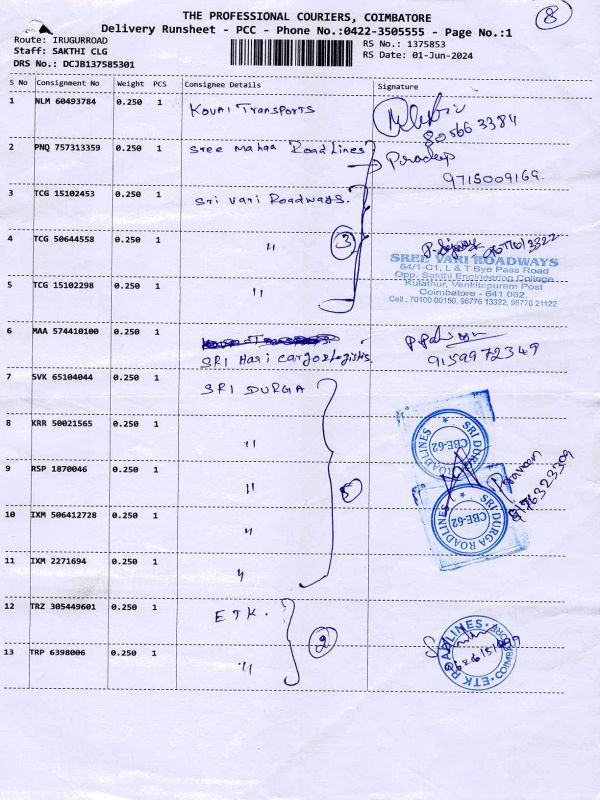 8
THE PROFESSIONAL COURIERS, COIMBATORE
Delivery Runsheet - PCC - Phone No.:0422-3505555 - Page No.:1
Route: IRUGURROAD
Staff: SAKTHI CLG
DRS No.: DCJB137585301
RS No.: 1375853
RS Date: 01-Jun-2024
S No Consignment No Weight PCS Consignee Details Signature
1 NLM 60493784 0.250 1 Kovai Transports
80566 3384
2 PNQ 757313359 0.250 1 Sree Mahaa Road Lines Pradeep
9715009169.
3 TCG 15102453 0.250 1 Sri Vari Roadways.
4 TCG 50644558 0.250 1 " 3
SREE VARI ROADWAYS
64/1-C1, L & T Bye Pass Road
Opp. Sakthi Engineering College
Kulathur, Venkitapuram Post
Coimbatore - 641 062.
Cell : 70100 00150, 98776 13322, 96776 21122
5 TCG 15102298 0.250 1 "
6 MAA 574410100 0.250 1 SRI Hari cargo logistics
9159972349
7 SVK 65104044 0.250 1 SRI DURGA
8 KRR 50021565 0.250 1 "
SRI DURGA ROADLINES
CBE-62
9 RSP 1870046 0.250 1 " 5
Praveen
SRI DURGA ROADLINES
CBE-62
10 IXM 506412728 0.250 1 "
11 IXM 2271694 0.250 1 "
12 TRZ 305449601 0.250 1 ETK. 2
13 TRP 6398006 0.250 1 "
ETK ROADLINES